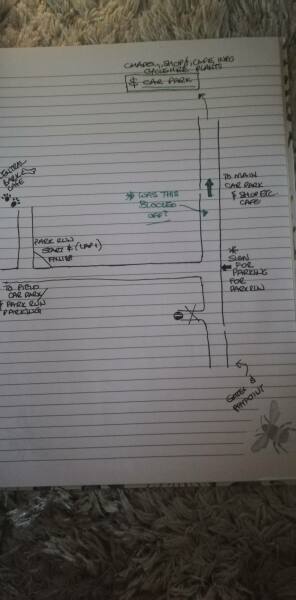 CHAPEL, SHOP, CAFE, INFO
CYCLE HIRE, PLANTS
& CAR PARK
CENTRAL
BARK
CAFE
* WAS THIS
BLOCKED
OFF?
TO MAIN
CAR PARK
& SHOP ETC
CAFE
PARK RUN
START & (LAP 1)
FINISH
* SIGN
FOR
PARKING
FOR
PARKRUN
TO FIELD
CAR PARK
& PARK RUN
PARKING
&
PAYPOINT